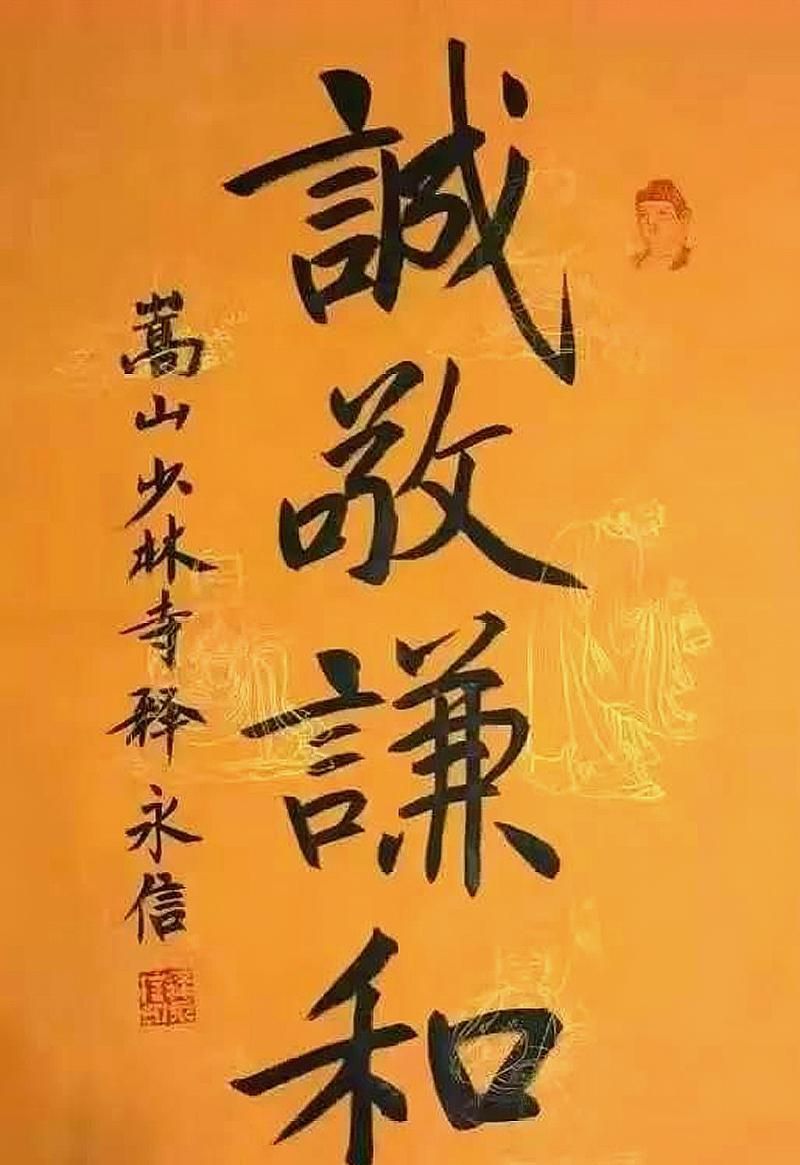 誠敬謙和
嵩山少林寺釋永信